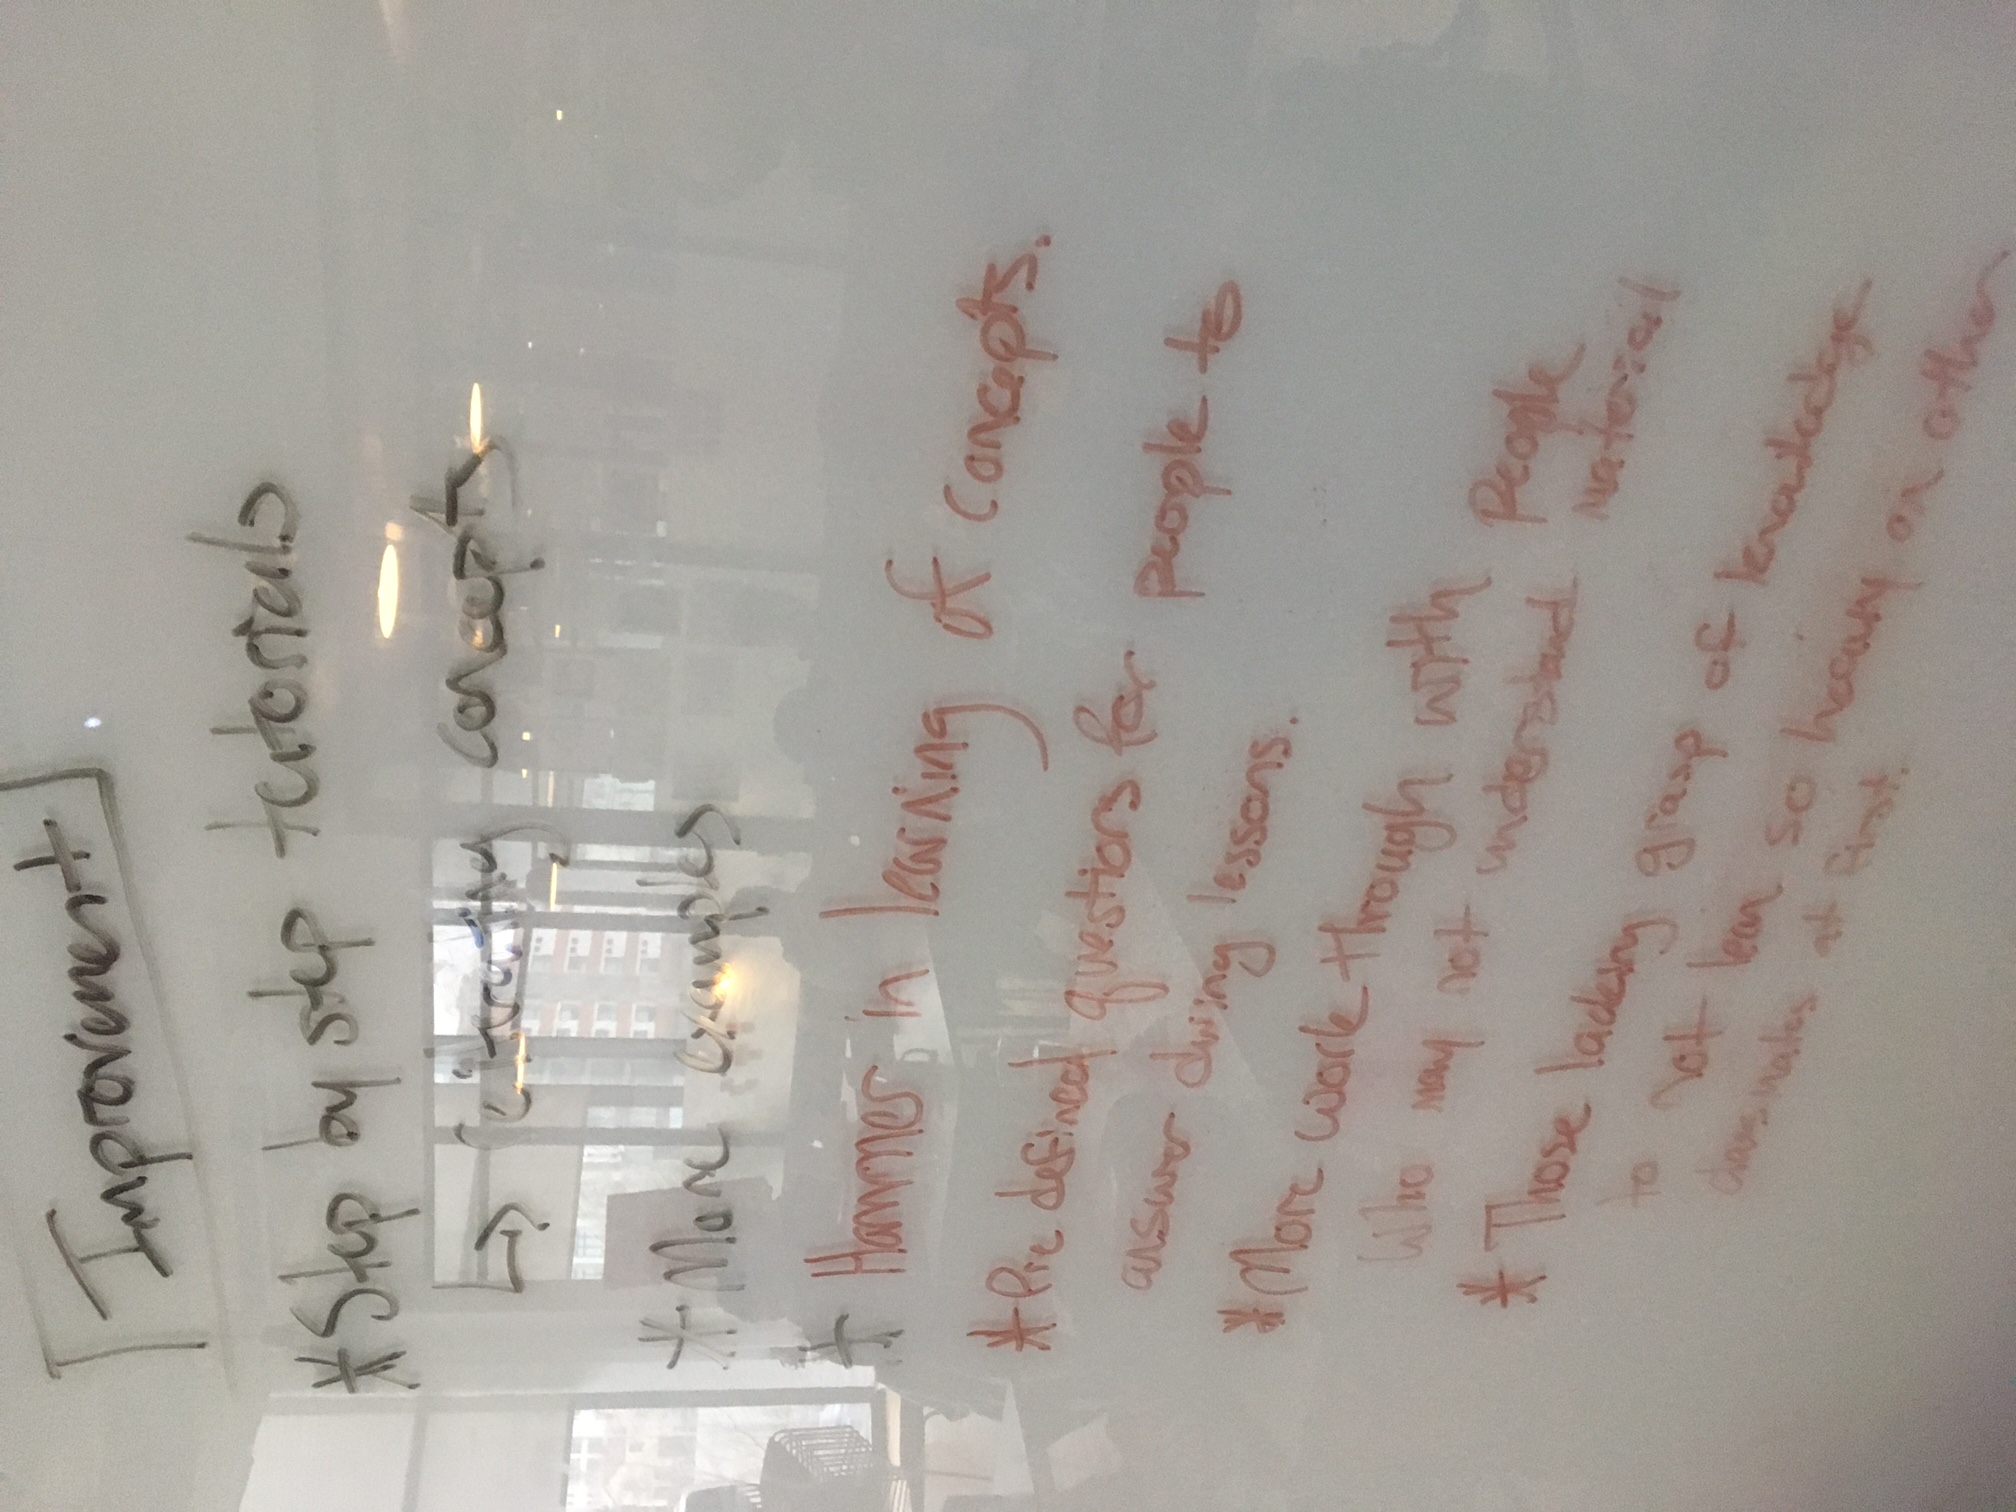 Improvement
* Step by step tutorials
↳ reiterating concepts
* More examples
* Hammer in learning of concepts.
* Pre defined questions for people to
answer during lessons.
* More work through with people
who may not understand material
* Those lacking grasp of knowledge
to not lean so heavily on other
classmates at first.